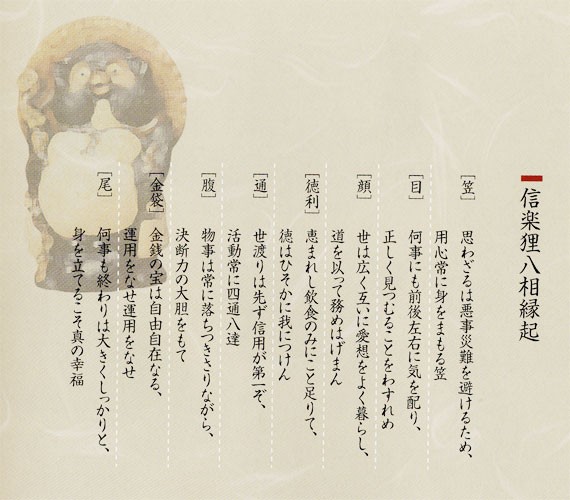 信楽狸八相縁起
［笠］ 思わざるは悪事災難を避けるため、
用心常に身をまもる笠
［目］ 何事にも前後左右に気を配り、
正しく見つむることをわすれめ
［顔］ 世は広く互いに愛想をよく暮らし、
道を以って務めはげまん
［徳利］ 恵まれし飲食のみにこと足りて、
徳はひそかに我につけん
［通］ 世渡りは先ず信用が第一ぞ、
活動常に四通八達
［腹］ 物事は常に落ちつきさりながら、
決断力の大胆をもて
［金袋］ 金銭の宝は自由自在なる、
運用をなせ運用をなせ
［尾］ 何事も終わりは大きくしっかりと、
身を立てるこそ真の幸福